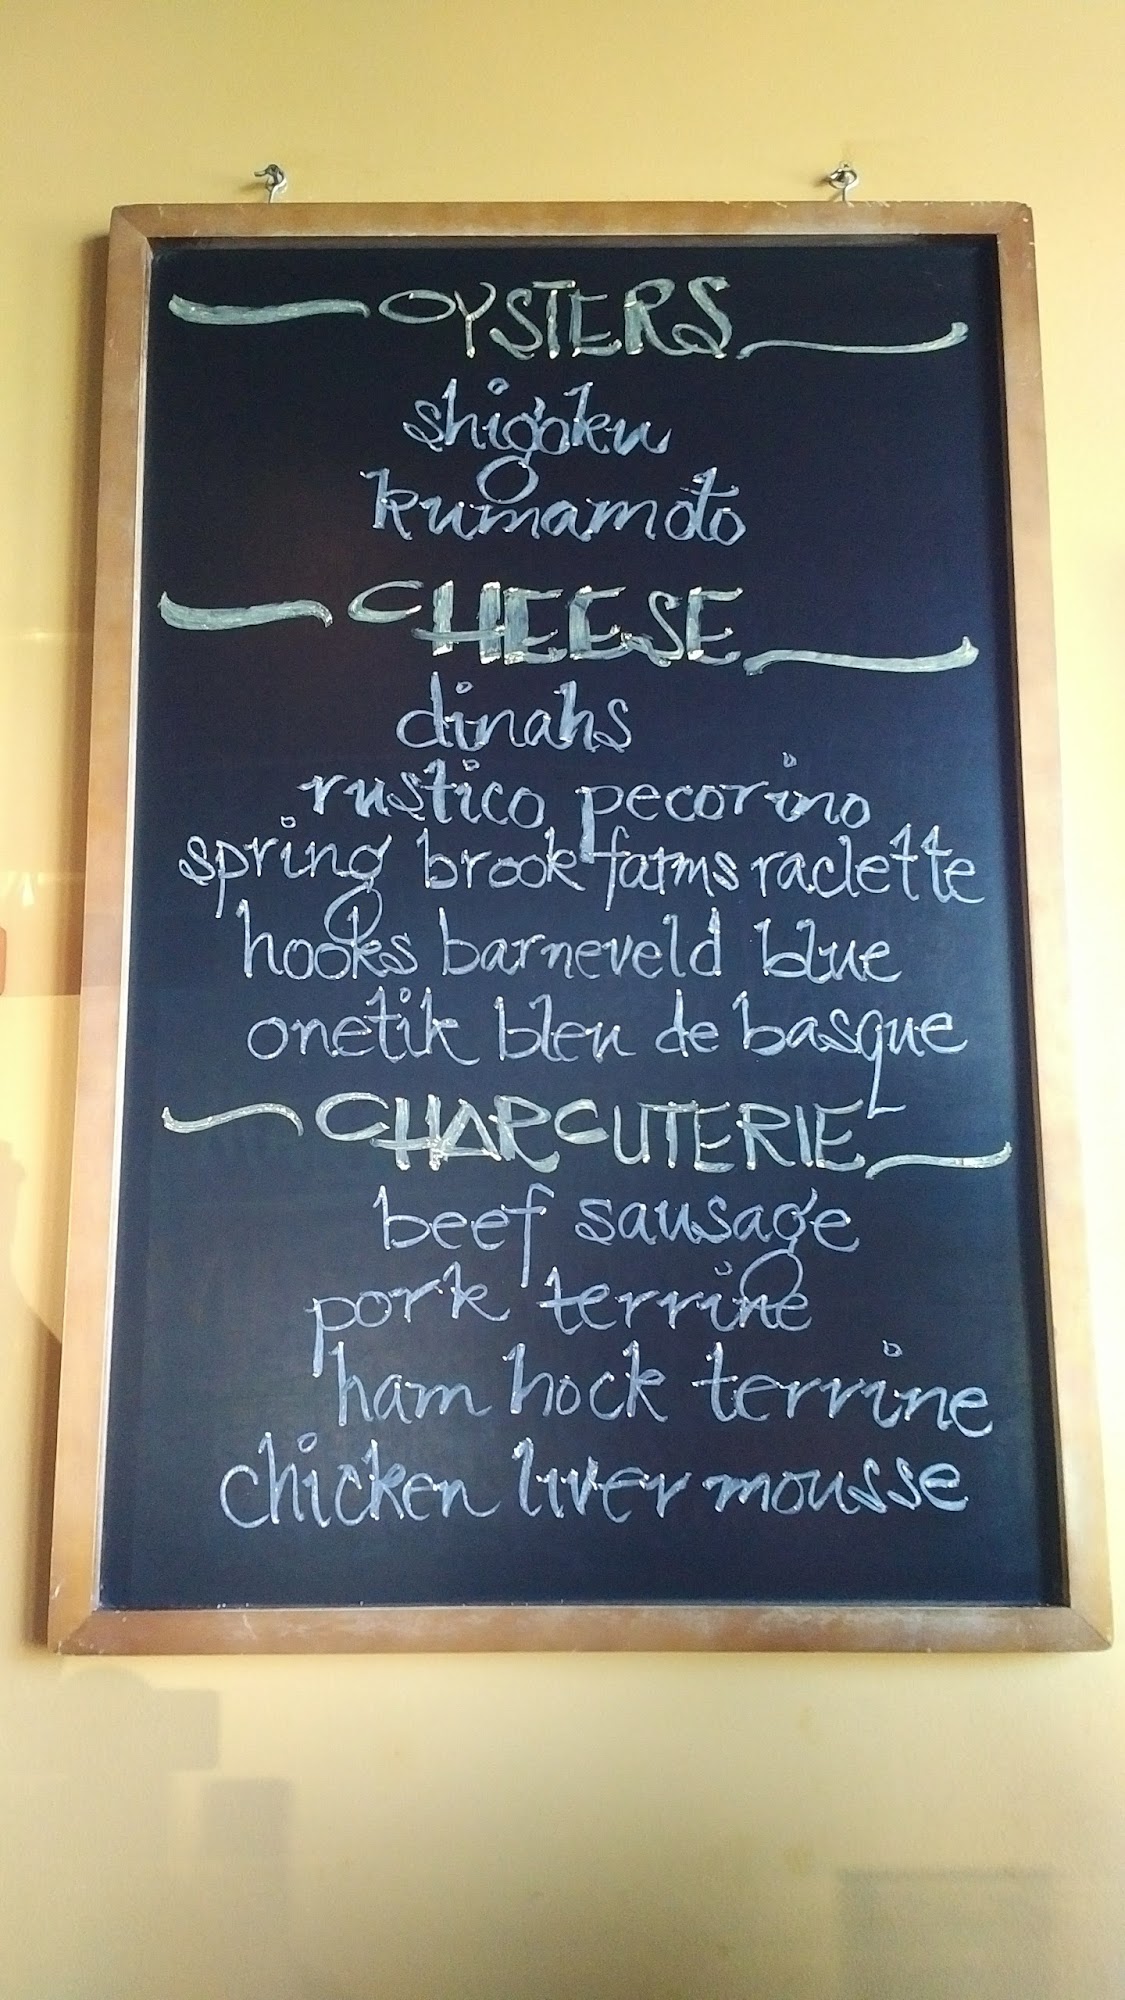 OYSTERS
shigoku
kumamoto
CHEESE
dinahs
rustico pecorino
spring brook farms raclette
hooks barneveld blue
onetik bleu de basque
CHARCUTERIE
beef sausage
pork terrine
ham hock terrine
chicken liver mousse